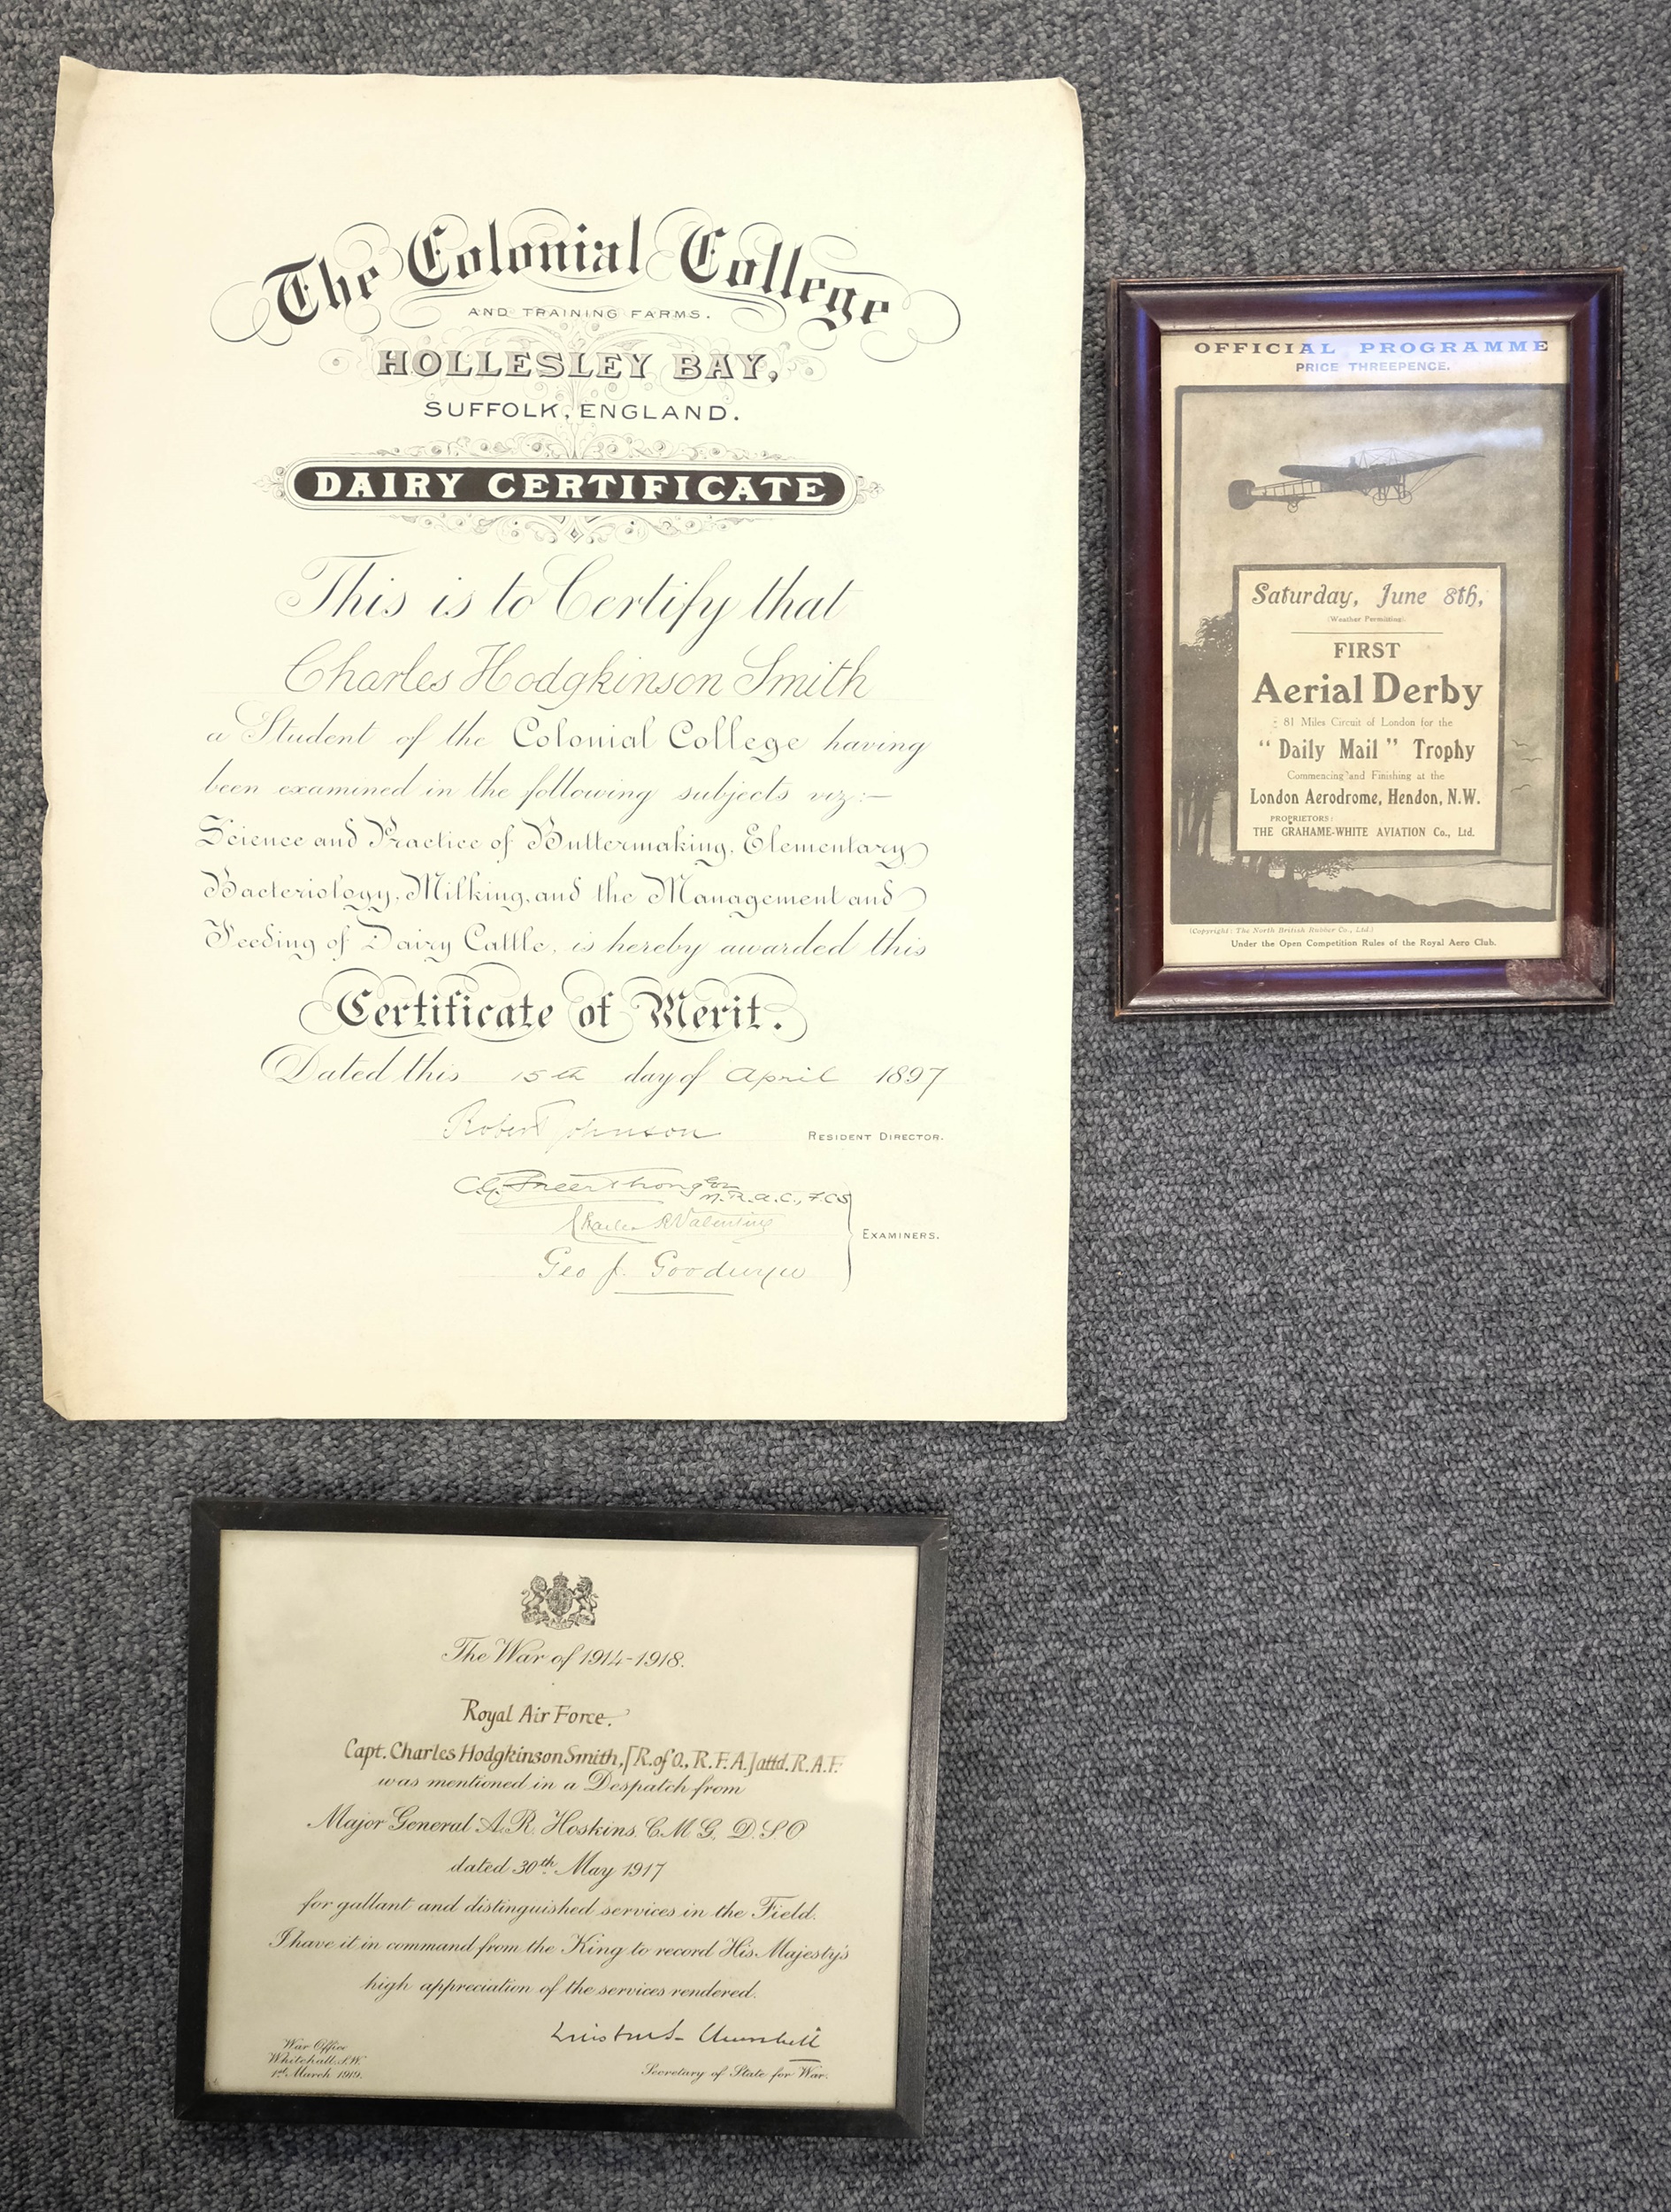 The Colonial College
AND TRAINING FARMS.
HOLLESLEY BAY,
SUFFOLK, ENGLAND.
DAIRY CERTIFICATE
This is to Certify that
Charles Hodgkinson Smith
a Student of the Colonial College having
been examined in the following subjects viz:—
Science and Practice of Buttermaking, Elementary
Bacteriology, Milking, and the Management and
Feeding of Dairy Cattle, is hereby awarded this
Certificate of Merit.
Dated this 15th day of April 1897
Robert Johnson RESIDENT DIRECTOR.
C.G. M.R.A.C., F.C.S
Charles R Valentine
EXAMINERS.
Geo J. Goodwyn
OFFICIAL PROGRAMME
PRICE THREEPENCE.
Saturday, June 8th,
(Weather Permitting).
FIRST
Aerial Derby
81 Miles Circuit of London for the
"Daily Mail" Trophy
Commencing and Finishing at the
London Aerodrome, Hendon, N.W.
PROPRIETORS:
THE GRAHAME-WHITE AVIATION Co., Ltd.
(Copyright: The North British Rubber Co., Ltd.)
Under the Open Competition Rules of the Royal Aero Club.
The War of 1914-1918.
Royal Air Force.
Capt. Charles Hodgkinson Smith, [R. of O., R.F.A.] attd. R.A.F.
was mentioned in a Despatch from
Major General A.R. Hoskins. C.M.G. D.S.O
dated 30th May 1917
for gallant and distinguished services in the Field.
I have it in command from the King to record His Majesty's
high appreciation of the services rendered.
Winston S Churchill
War Office
Whitehall, S.W.
1st March 1919.
Secretary of State for War.